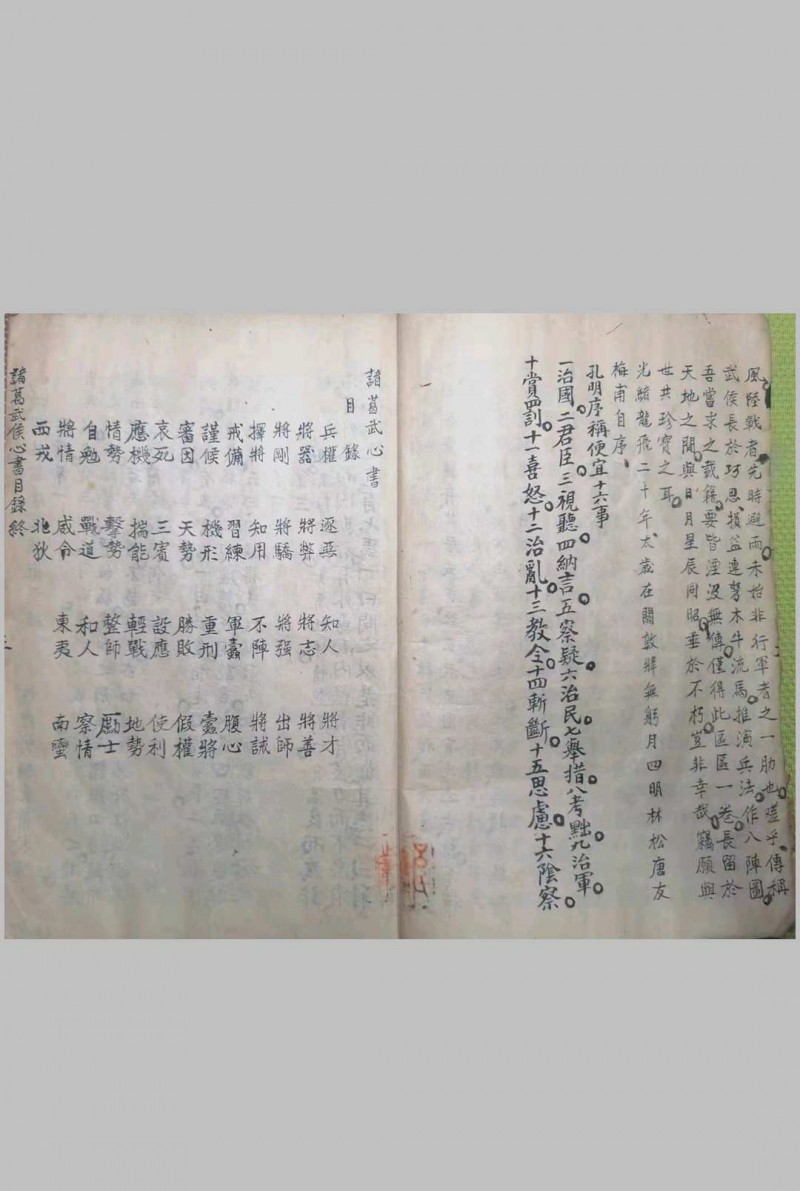 風陸戰者先時避而未始非行軍者之一助也嗟乎傳稱
武侯長於巧思損益連弩木牛流馬推演兵法作八陣圖
吾嘗求之載籍要皆湮没無傳僅得此區區一卷長留於
天地之間與日月星辰同昭垂於不朽豈非幸哉竊願與
世共珍寶之耳
光緒龍飛二十年太歲在閼敦牂無射月四明林松唐友
梅甫自序
孔明序稱便宜十六事
一治國二君臣三視聽四納言五察疑六治民七舉措八考黜九治軍
十賞罰十一喜怒十二治亂十三教令十四斬斷十五思慮十六陰察
諸葛武心書
目錄
兵權 逐惡 知人 將才
將器 將弊 將志 將善
將剛 將驕 將强 出師
擇將 知用 不陣 將誡
戒備 習練 軍蠹 腹心
謹候 機形 重刑 蠹將
審因 天勢 勝敗 假權
哀死 三賓 設應 使利
應機 揣能 輕戰 地勢
情勢 擊勢 整師 厲士
自勉 戰道 和人 察情
將情 威令
西戎 北狄 東夷 南蠻
諸葛武侯心書目錄終